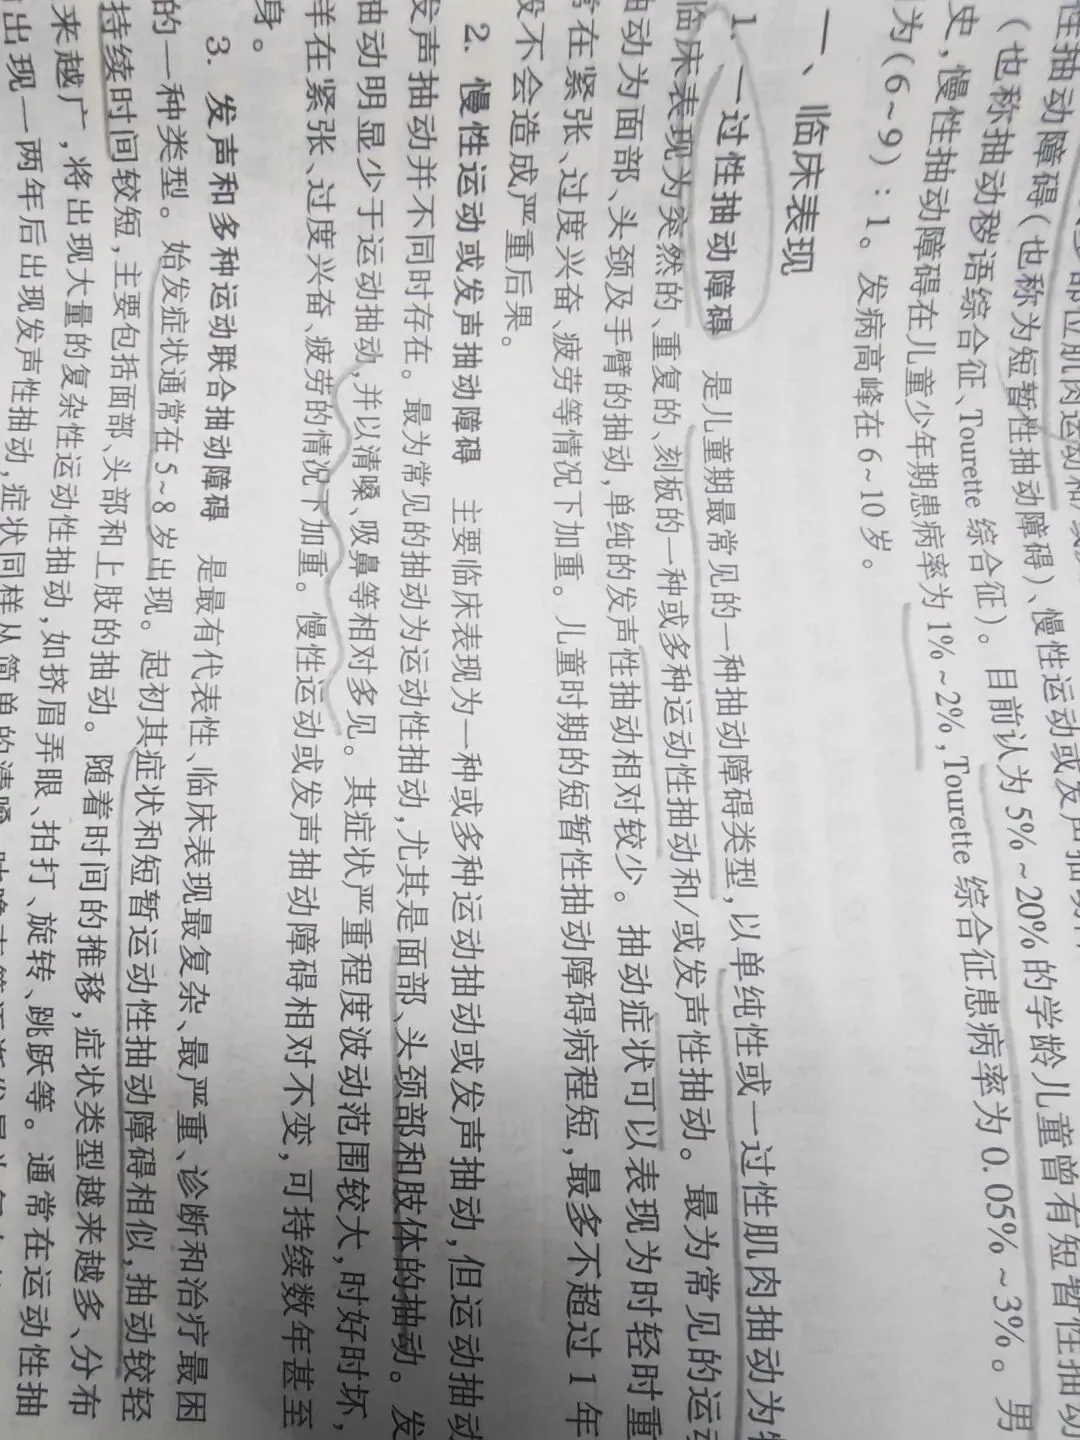 部位肌肉运动和
性抽动障碍(也称为短暂性抽动障碍)、慢性运动或发声抽动
(也称抽动秽语综合征、Tourette 综合征)。目前认为 5%~20% 的学龄儿童曾有短暂性抽动
史,慢性抽动障碍在儿童少年期患病率为 1%~2%,Tourette 综合征患病率为 0.05%~3%。男
为(6~9):1。发病高峰在 6~10 岁。
一、临床表现
1. 一过性抽动障碍 是儿童期最常见的一种抽动障碍类型,以单纯性或一过性肌肉抽动为
临床表现为突然的、重复的、刻板的一种或多种运动性抽动和/或发声性抽动。最为常见的运
动为面部、头颈及手臂的抽动,单纯的发声性抽动相对较少。抽动症状可以表现为时轻时重
常在紧张、过度兴奋、疲劳等情况下加重。儿童时期的短暂性抽动障碍病程短,最多不超过 1 年
没不会造成严重后果。
2. 慢性运动或发声抽动障碍 主要临床表现为一种或多种运动抽动或发声抽动,但运动抽动
发声抽动并不同时存在。最为常见的抽动为运动性抽动,尤其是面部、头颈部和肢体的抽动。发
抽动明显少于运动抽动,并以清嗓、吸鼻等相对多见。其症状严重程度波动范围较大,时好时坏,
样在紧张、过度兴奋、疲劳的情况下加重。慢性运动或发声抽动障碍相对不变,可持续数年甚至
身。
3. 发声和多种运动联合抽动障碍 是最有代表性、临床表现最复杂、最严重、诊断和治疗最困
的一种类型。始发症状通常在 5~8 岁出现。起初其症状和短暂运动性抽动障碍相似,抽动较轻
持续时间较短,主要包括面部、头部和上肢的抽动。随着时间的推移,症状类型越来越多、分布
来越广,将出现大量的复杂性运动性抽动,如挤眉弄眼、拍打、旋转、跳跃等。通常在运动性抽
出现一两年后出现发声性抽动,症状同样从简单的清嗓